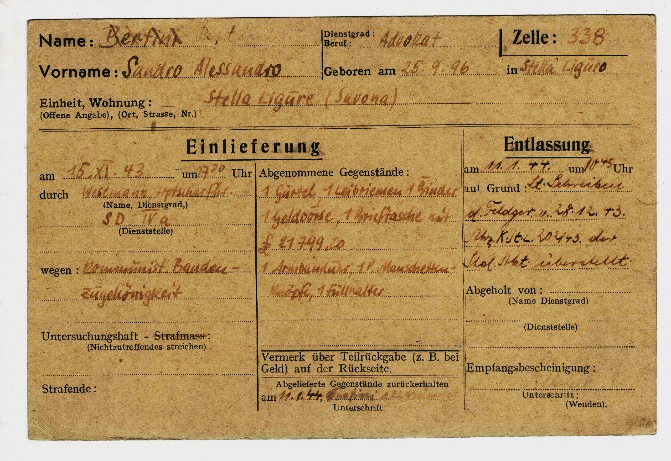 Name:
Dienstgrad:
Beruf: Advokat
Zelle: 338
Vorname: Sandro Alessandro
Geboren am 25. 9. 96 in Stella Ligure
Einheit, Wohnung: Stella Ligure (Savona)
(Offene Angabe), (Ort, Strasse, Nr.)
Einlieferung
am 15. XI. 43 um 1900 Uhr
durch
(Name, Dienstgrad,)
SD IVa
(Dienststelle)
wegen: Kommunist Banden-
zugehörigkeit
Untersuchungshaft - Strafmass:
(Nichtzutreffendes streichen)
Strafende:
Abgenommene Gegenstände:
1 Gürtel 1 Leibriemen 1 Binder
1 Geldbörse, 1 Brieftasche mit
1 Armbanduhr, 1 P. Manschetten-
knöpfe, 1 Füllhalter
Vermerk über Teilrückgabe (z. B. bei
Geld) auf der Rückseite.
Abgelieferte Gegenstände zurückerhalten
am 11. 1. 44.
Unterschrift
Entlassung
am 11. 1. 44. um Uhr
auf Grund: Lt. Schreiben
d. Feldger. v. 28. 12. 43.
der
überstellt.
Abgeholt von:
(Name Dienstgrad)
(Dienststelle)
Empfangsbescheinigung:
Unterschrift;
(Wenden).